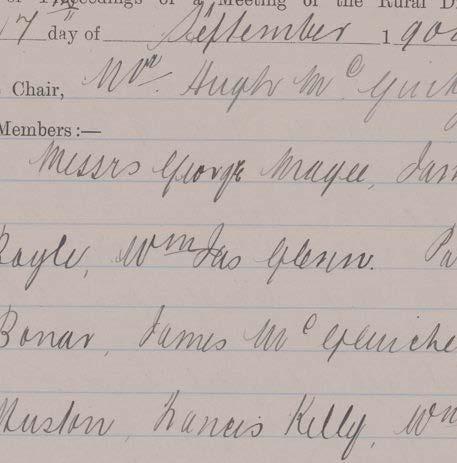 of Proceedings of a Meeting of the Rural Di
17th day of September 190
Chair, Mr. Hugh McGin
Members :—
Messrs George Magee, Jam
Boyle, Wm Jas Glenn. Pa
Bonar, James McGlinche
Huston, Francis Kelly, Wm